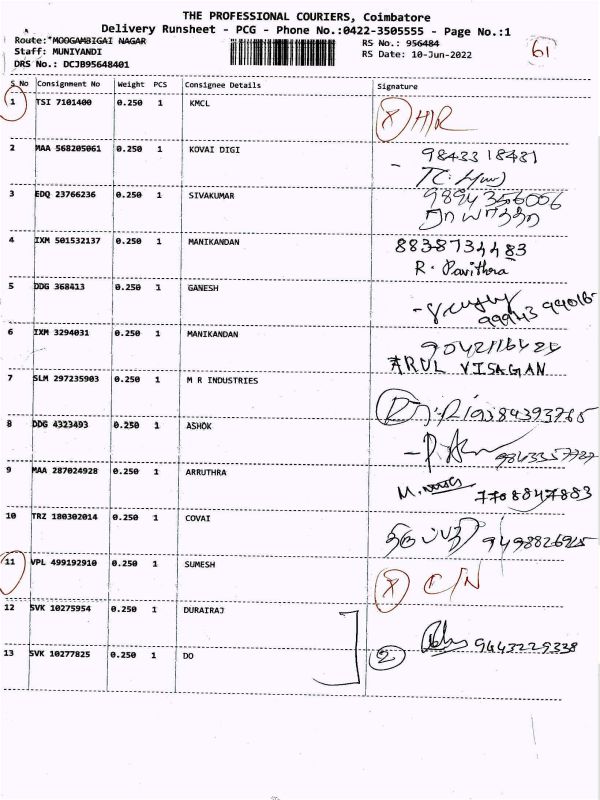 THE PROFESSIONAL COURIERS, Coimbatore
Delivery Runsheet - PCG - Phone No.:0422-3505555 - Page No.:1
Route:*MOOGAMBIGAI NAGAR
RS No.: 956484
61
Staff: MUNIYANDI
RS Date: 10-Jun-2022
DRS No.: DCJB95648401
S No Consignment No Weight PCS Consignee Details Signature
1 TSI 7101400 0.250 1 KMCL
X
2 MAA 568205061 0.250 1 KOVAI DIGI
98433 18431
3 EDQ 23766236 0.250 1 SIVAKUMAR
9894 356006
4 IXM 501532137 0.250 1 MANIKANDAN
8838734483
R. Pavithra
5 DDG 368413 0.250 1 GANESH
99943 99016
6 IXM 3294031 0.250 1 MANIKANDAN
ARUL VISAGAN
7 SLM 297235903 0.250 1 M R INDUSTRIES
8 DDG 4323493 0.250 1 ASHOK
9 MAA 287024928 0.250 1 ARRUTHRA
7708847883
10 TRZ 180302014 0.250 1 COVAI
9498826925
11 VPL 499192910 0.250 1 SUMESH
X C/N
12 SVK 10275954 0.250 1 DURAIRAJ
9443229338
13 SVK 10277825 0.250 1 DO
2